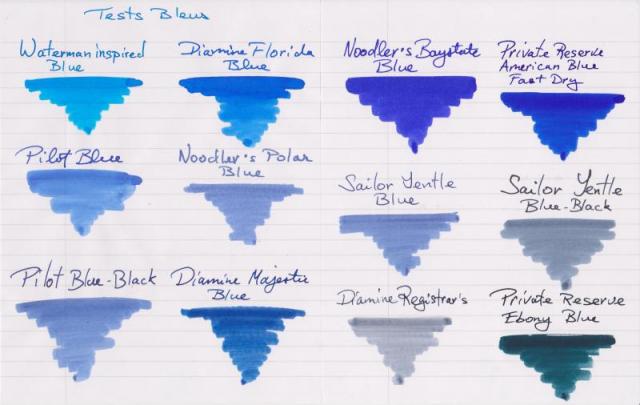 Tests Bleus
Waterman inspired
Blue
Diamine Florida
Blue
Noodler's Baystate
Blue
Private Reserve
American Blue
Fast Dry
Pilot Blue
Noodler's Polar
Blue
Sailor Jentle
Blue
Sailor Jentle
Blue-Black
Pilot Blue-Black
Diamine Majestic
Blue
Diamine Registrar's
Private Reserve
Ebony Blue